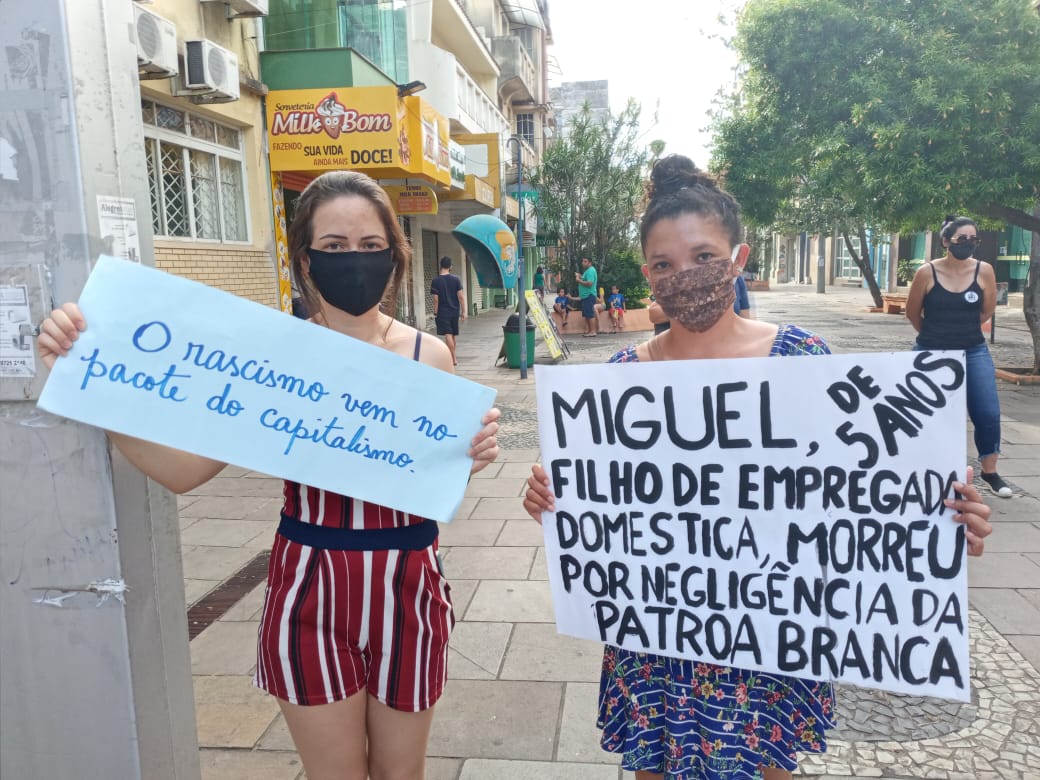 Sorveteria
MilkBom
FAZENDO
SUA VIDA
AINDA MAIS DOCE!
O rascismo vem no
pacote do capitalismo.
MIGUEL, DE
5 ANOS
FILHO DE EMPREGADA
DOMESTICA, MORREU
POR NEGLIGÊNCIA DA
PATROA BRANCA